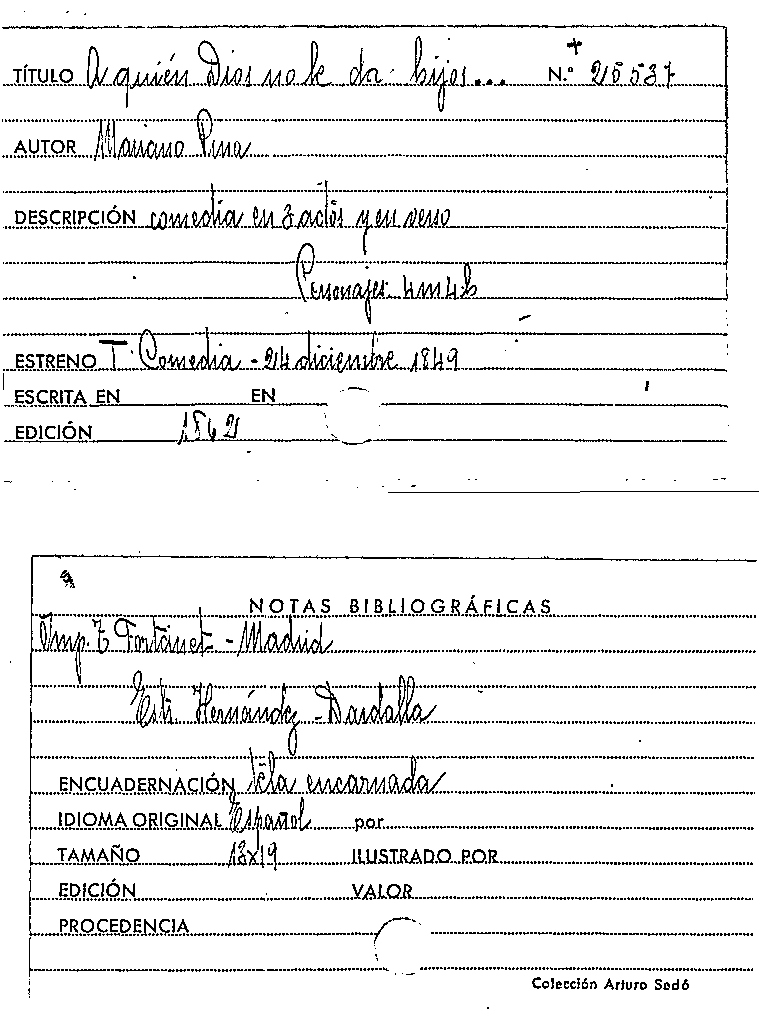 TÍTULO A quién Dios no le da hijos... N.º 25537
AUTOR Mariano Pina
DESCRIPCIÓN comedia en 3 actos y en verso
Personajes 4m4h
ESTRENO T. Comedia - 24 diciembre 1849
ESCRITA EN EN
EDICIÓN
NOTAS BIBLIOGRÁFICAS
Imp. T Fortanet - Madrid
Estr. Hernández - Dardalla
ENCUADERNACIÓN tela encarnada
IDIOMA ORIGINAL Español por
TAMAÑO 13x19 ILUSTRADO POR
EDICIÓN VALOR
PROCEDENCIA
Colección Arturo Sedó